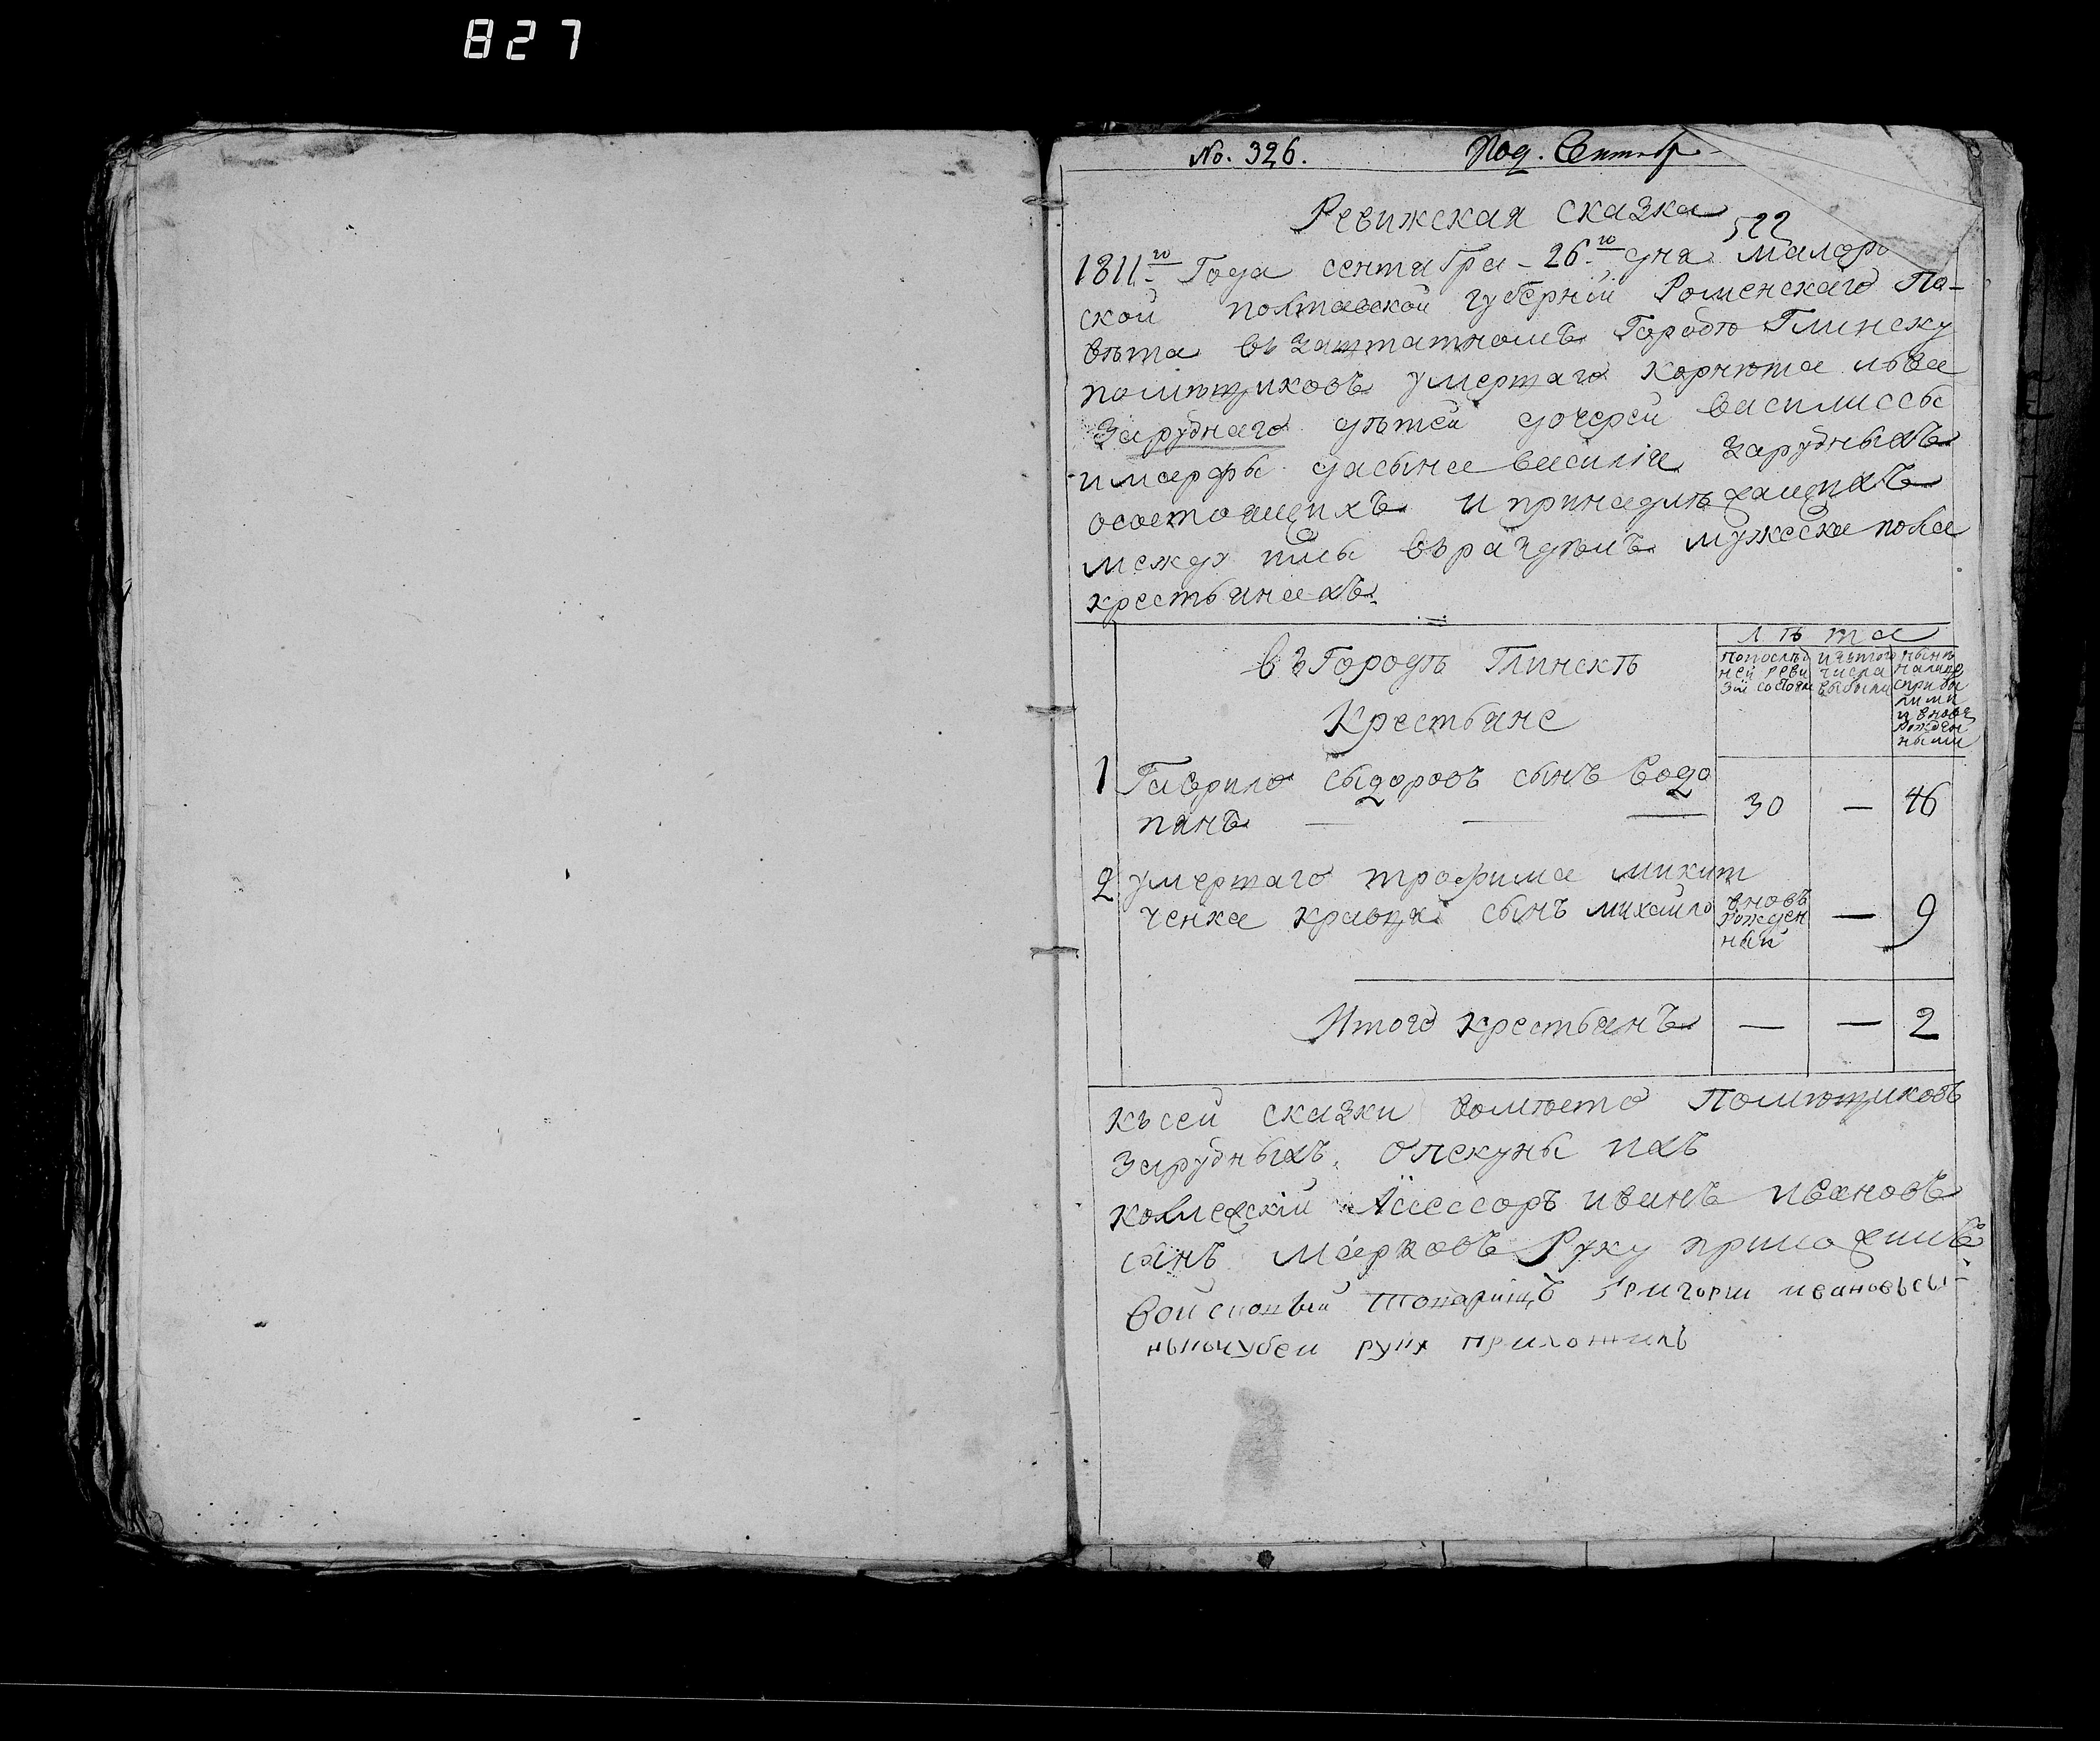 827
No. 326. Под. Сентябр
Ревижская сказка
522
1811го Года сентября - 26го дня малоро
ской полтавской губернїи Роменскаго По-
вѣта въ заштатномъ Городѣ Глинску
помѣщиковъ умертаго корнета льва
Заруднаго дѣтей дочерей василиссы
и марфы да сына василия Зарудныхъ
о состоящихъ и принадлѣжащихъ
между ими въ раздѣлъ мужеска пола
крестьянахъ
въ Городѣ Глинскѣ
Крестьяне
лѣта
по послѣд ней реви зїи состояли
изътого числа выбыли
нынѣ налице сприбы лыми и вновь рожден ными
1 Гаврило сыдоровъ сынъ Водо
пянъ — — — 30 — 46
2 умертаго трофима микит
ченка кравця сынъ михаило вновь рожден ный — 9
Итого крестьянъ — — 2
къ сей сказки вомѣсто Помѣщиковъ
Зарудныхъ опекуны ихъ
коллежскїй Ассессоръ иванъ ивановъ
сынъ марковъ Руку приложилъ
Войсковый Товарищъ Григорий ивановъ сы-
нъ кочубей руку приложилъ